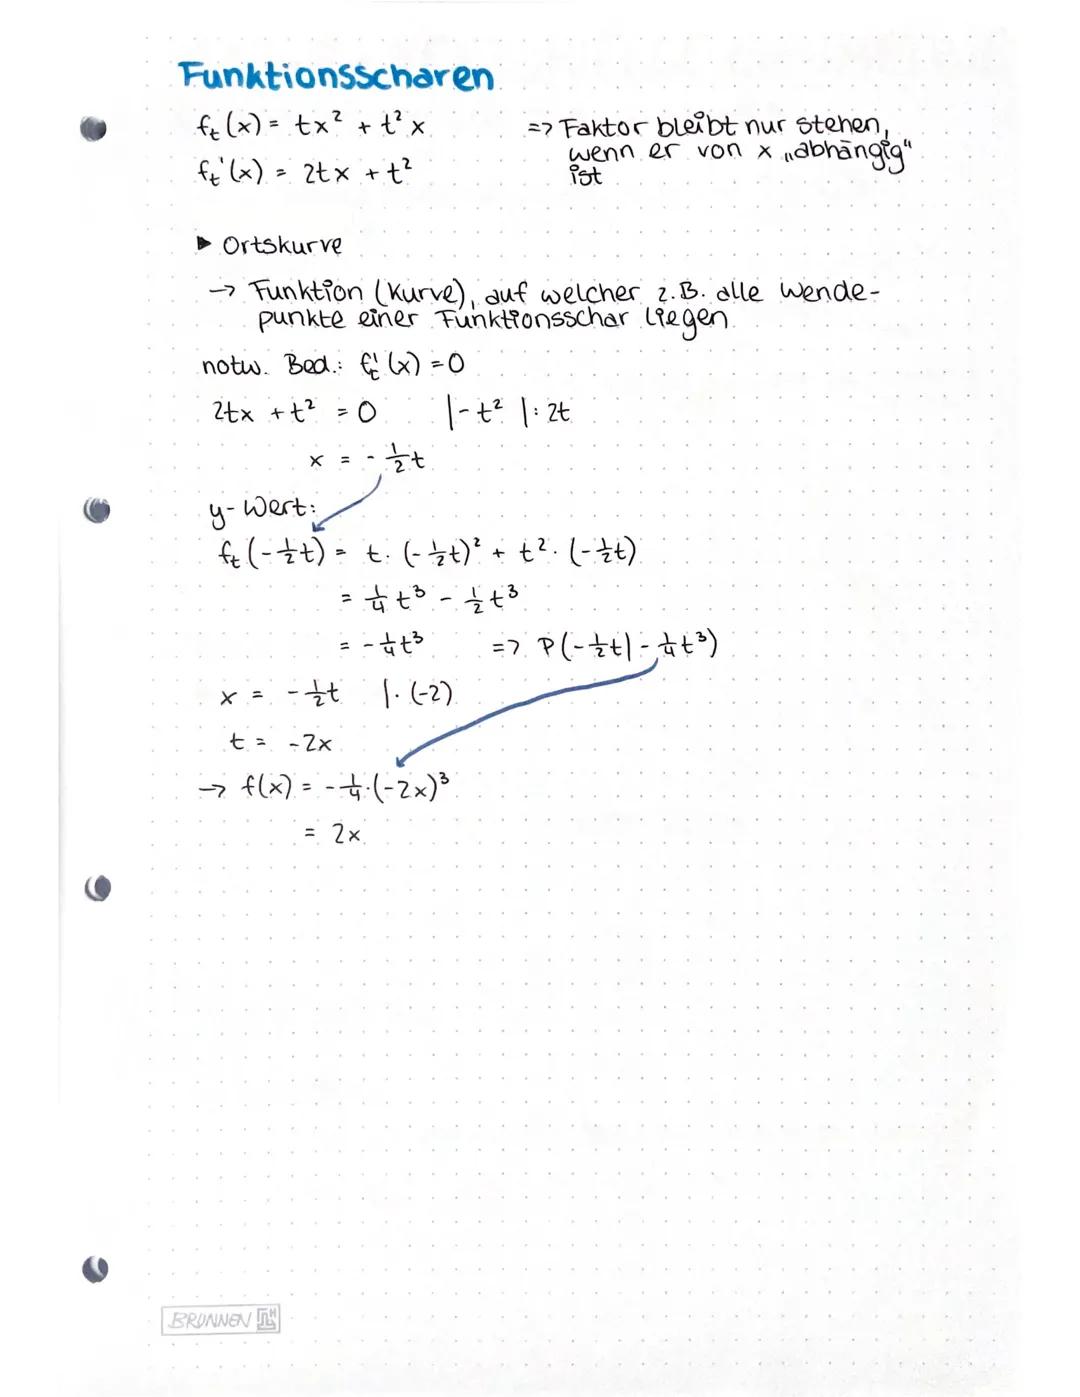 Funktionsscharen
fₜ(x) = tx² + t²x
fₜ'(x) = 2tx + t²
=> Faktor bleibt nur stehen,
wenn er von x „abhängig"
ist
▶ Ortskurve
→ Funktion (Kurve), auf welcher z.B. alle Wende-
punkte einer Funktionsschar liegen
notw. Bed.: fₜ'(x) = 0
2tx + t² = 0 |- t² |: 2t
x = - ½t
y-Wert:
fₜ(-½t) = t · (-½t)² + t² · (-½t)
= ¼t³ - ½t³
= -¼t³ => P(-½t|-¼t³)
x = -½t |· (-2)
t = -2x
→ f(x) = -¼·(-2x)³
= 2x
BRUNNEN